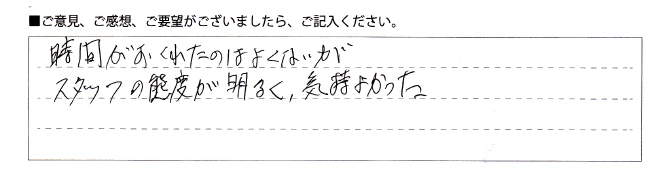 ■ご意見、ご感想、ご要望がございましたら、ご記入ください。
時間がおくれたのはよくないが
スタッフの態度が明るく、気持よかった。